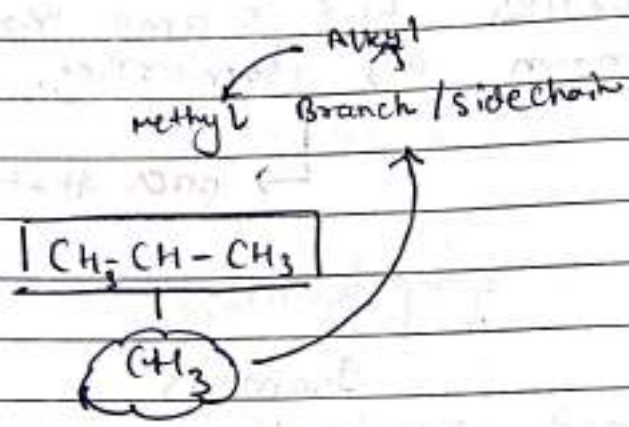 Alkyl
methyl Branch / sidechain
CH3-CH-CH3
CH3